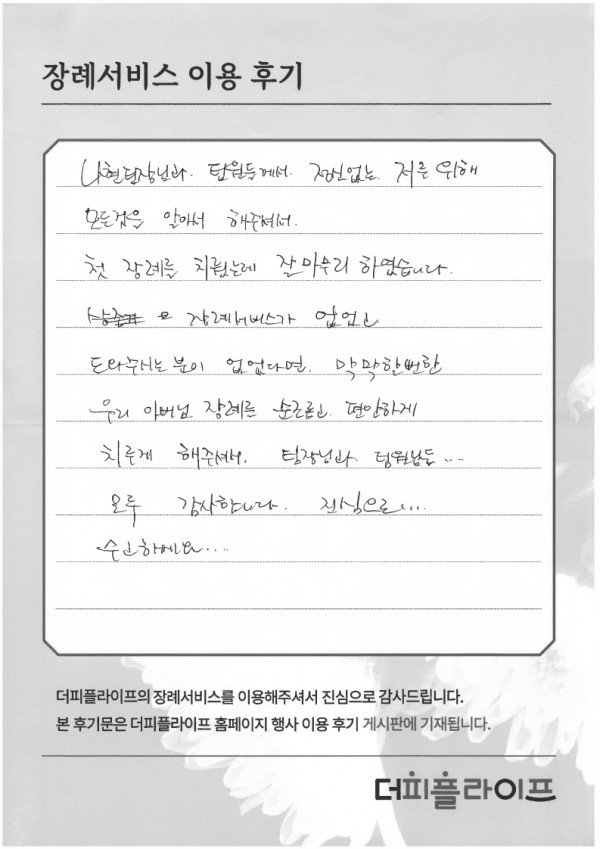 장례서비스 이용 후기
나현팀장님과. 팀원들께서. 정신없는 저를 위해
모든것을 알아서 해주셔서.
첫 장례를 치뤘는데 잘마무리 하였습니다.
장례서비스가 없었고
도와주시는 분이 없었다면. 막막할뻔한
우리 아버님 장례를 순조롭고. 편안하게
치루게 해주셔서. 팀장님과 팀원님들...
모두 감사합니다. 진심으로....
수고하세요....
더피플라이프의 장례서비스를 이용해주셔서 진심으로 감사드립니다.
본 후기문은 더피플라이프 홈페이지 행사 이용 후기 게시판에 기재됩니다.
더피플라이프